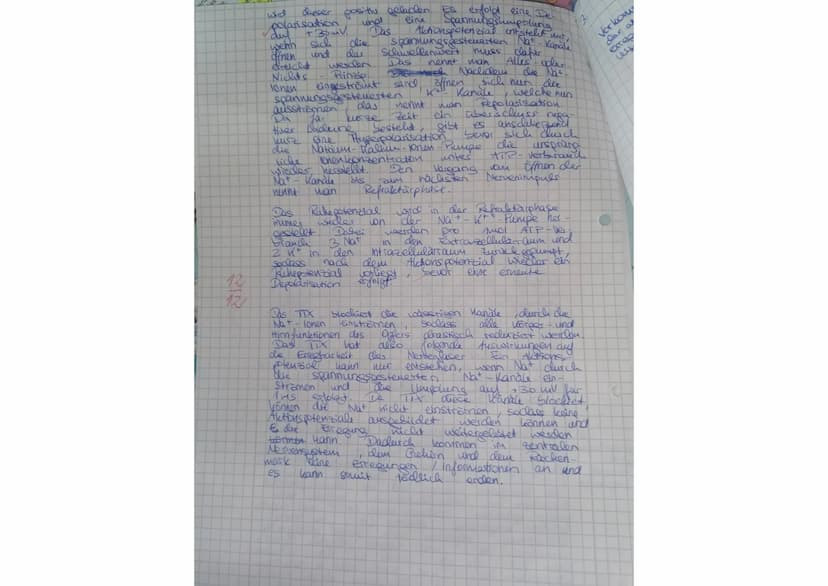 wird dieser positiv geladen. Es erfolgt eine De-
polarisation und eine Spannungsumpolung
auf +30mV. Das Aktionspotenzial entsteht nur,
wenn sich die spannungsgesteuerten Na⁺ Kanäle
öffnen und der Schwellenwert muss dafür
erreicht werden. Das nennt man Alles-oder-
Nichts-Prinzip. Nachdem die Na⁺
Ionen eingeströmt sind öffnen sich nun die
spannungsgesteuerten K⁺-Kanäle, welche nun
ausströmen, das nennt man repolarisation
Da für kurze Zeit ein Überschuss nega-
tiver Ladung besteht, gibt es anschließend
kurz eine Hyperpolarisation, bevor sich durch
die Natrium-Kalium-Ionen-Pumpe die ursprüng-
liche Ionenkonzentration unter ATP-Verbrauch
wieder herstellt. Den Vorgang vom Öffnen der
Na⁺-Kanäle bis zum nächsten Nervenimpuls
nennt man Refraktärphase.
Das Ruhepotenzial wird in der Refraktärphase
immer wieder von der Na⁺-K⁺-Pumpe her-
gestellt. Dabei werden pro mol ATP-Ver-
brauch 3 Na⁺ in den Extrazellulärraum und
2 K⁺ in den Intrazellulärraum zurückgepumpt,
sodass nach dem Aktionspotenzial wieder ein
Ruhepotenzial vorliegt, bevor eine erneute
Depolarisation erfolgt
12
12
Das TTX blockiert die Kanäle, durch die
Na⁺-Ionen einströmen, sodass alle Körper- und
Hirnfunktionen des Opfers drastisch reduziert werden.
Das TTX hat also folgende Auswirkungen auf
die Erregbarkeit der Nervenfaser: Ein Aktions-
potenzial kann nur entstehen, wenn Na⁺ durch
die spannungsgesteuerten Na⁺-Kanäle ein-
strömen und die Umpolung auf +30 mV für
1ms erfolgt. Da TTX diese Kanäle blockiert,
können die Na⁺ nicht einströmen, sodass keine
Aktionspotenziale ausgebildet werden können und
die Erregung nicht weitergeleitet werden
kann. Dadurch kommen im zentralen
Nervensystem, dem Gehirn und dem Rücken-
mark keine Erregungen / Informationen an und
es kann somit tödlich enden.